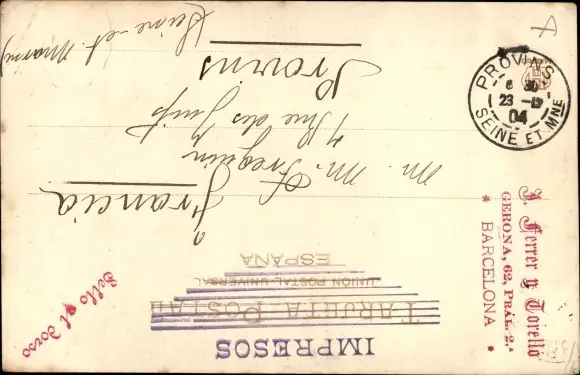 IMPRESOS
TARJETA POSTAL
UNION POSTAL UNIVERSAL
ESPAÑA
Sello al dorso
Francia
M. M. Freguin
7 Rue des Juifs
Provins
Seine-et-Marne
J. Ferrer y Torelló
GERONA, 62, PRAL. 2.ª
* BARCELONA *
PROVINS
23 -12
04
SEINE ET MNE
A